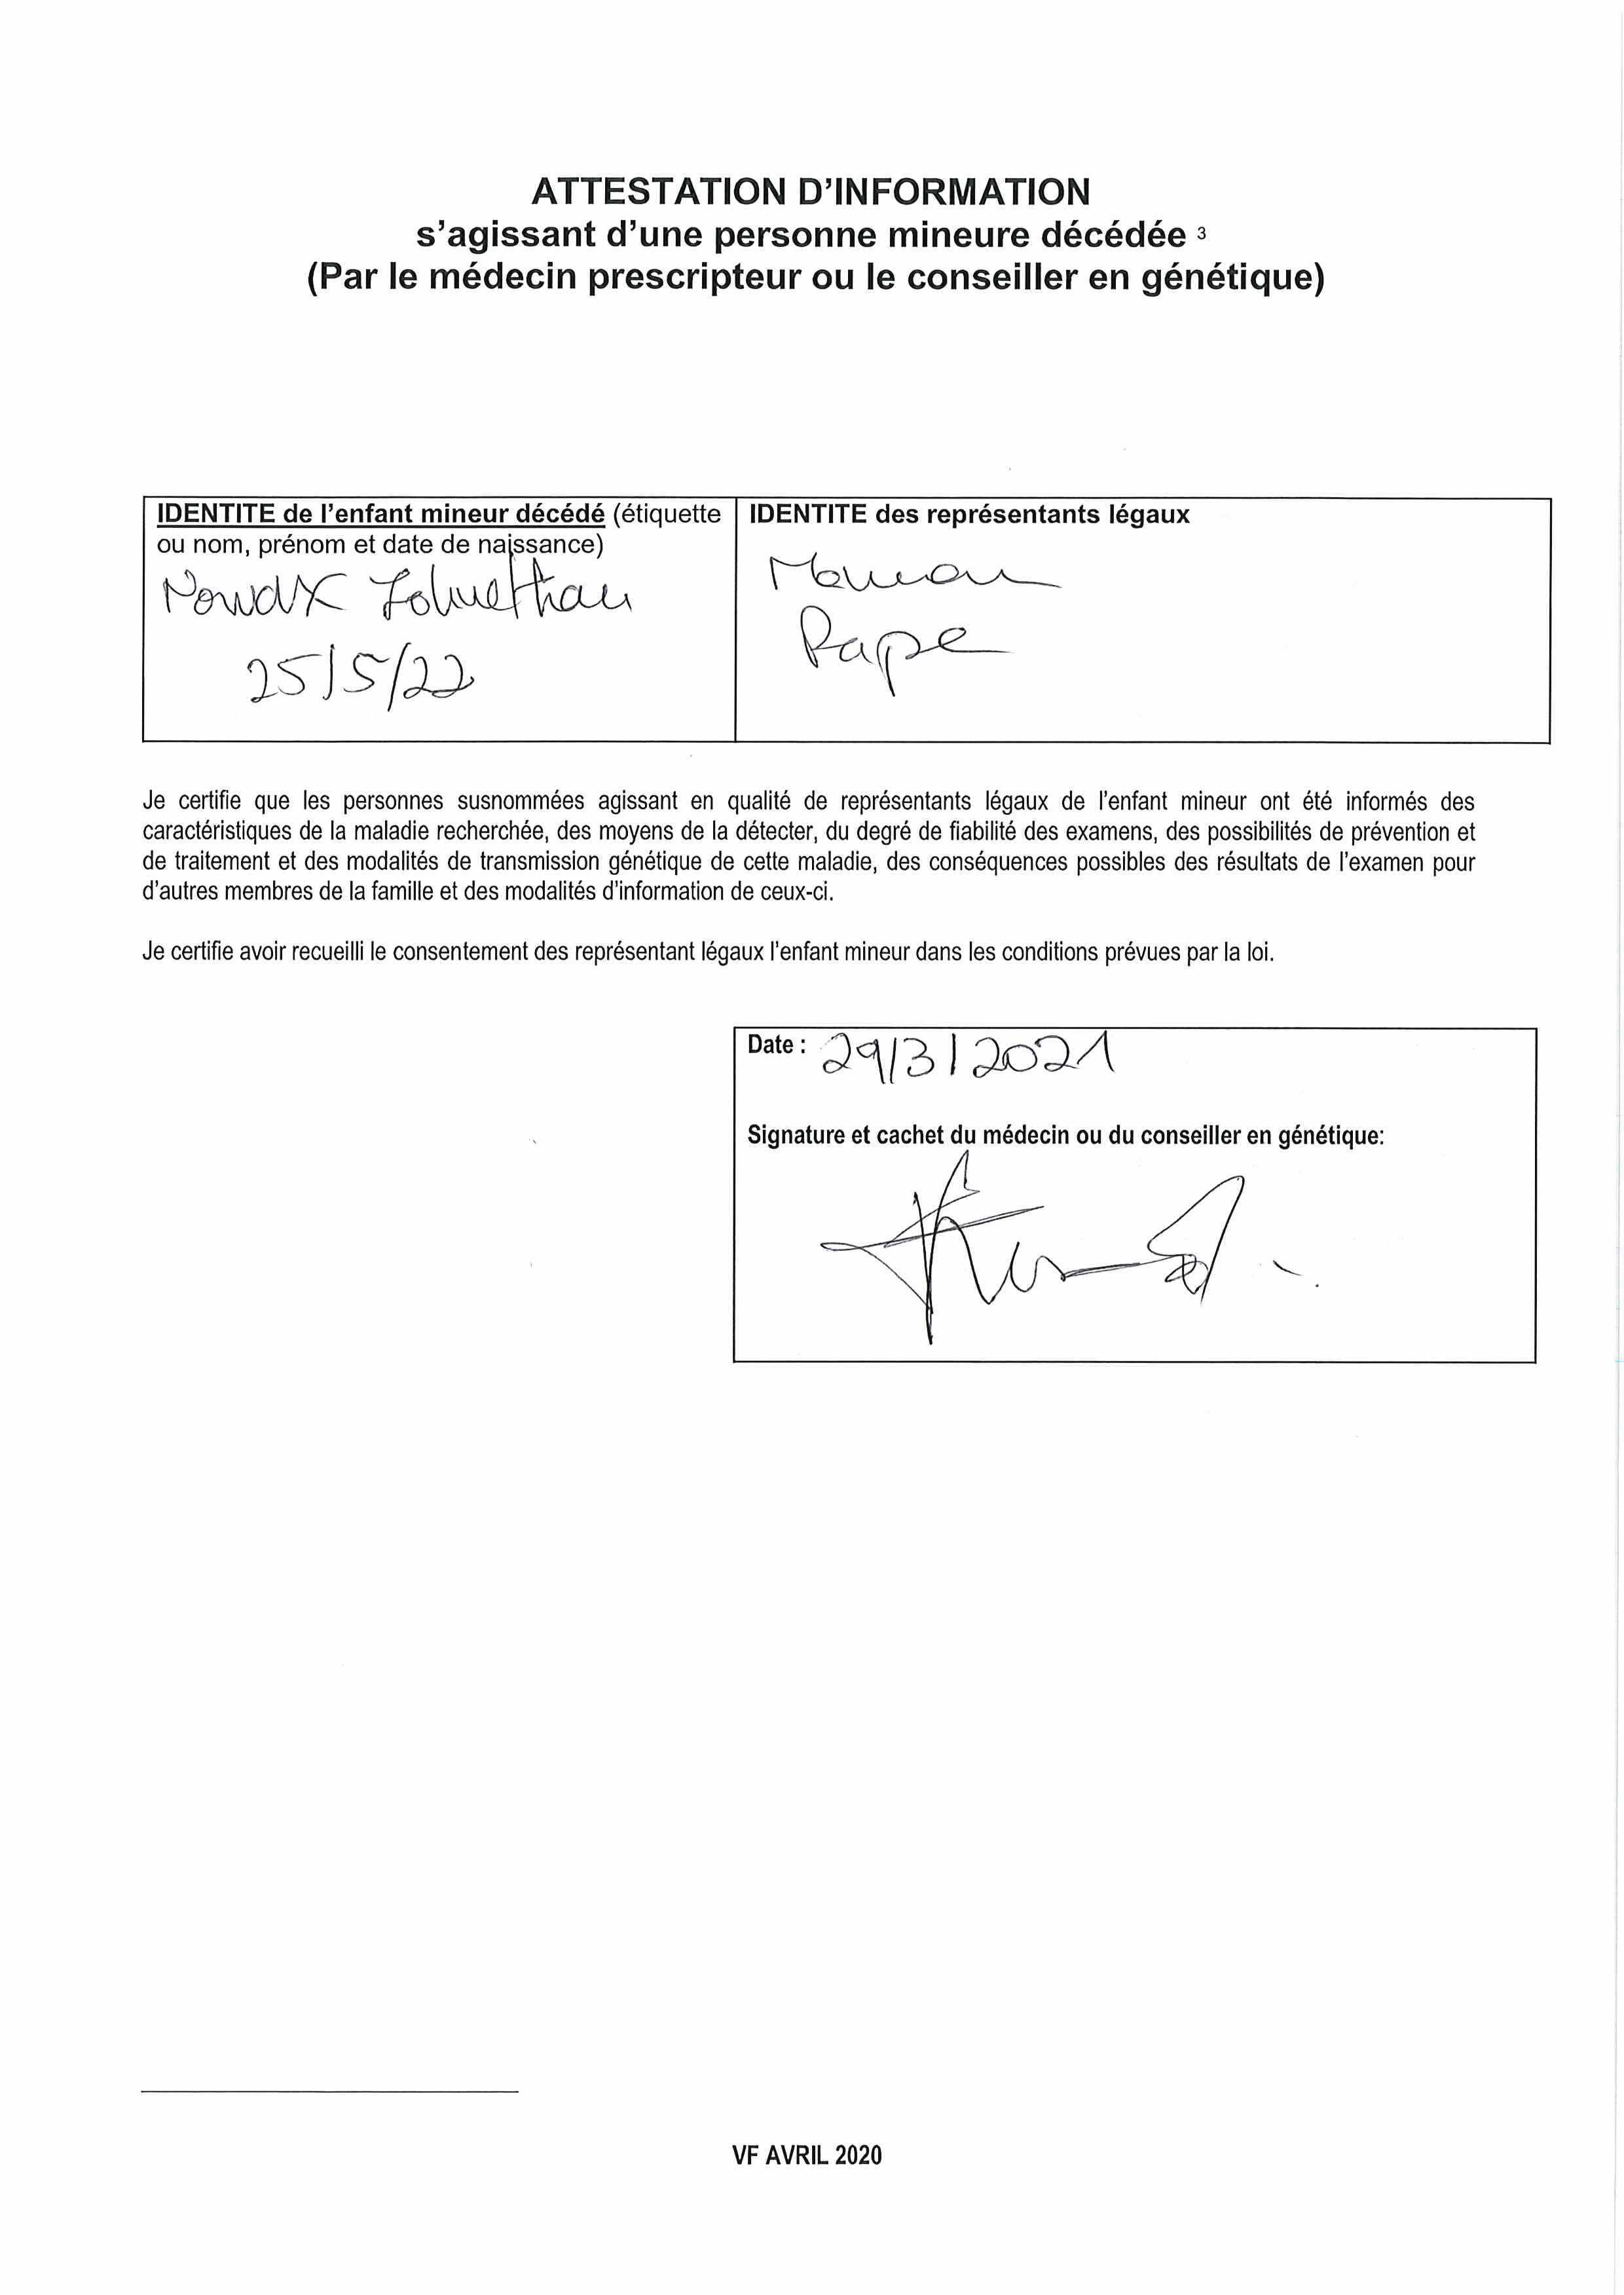 ATTESTATION D'INFORMATION
s'agissant d'une personne mineure décédée ³
(Par le médecin prescripteur ou le conseiller en génétique)
IDENTITE de l'enfant mineur décédé (étiquette
ou nom, prénom et date de naissance)
25/5/22
IDENTITE des représentants légaux
Maman
Papa
Je certifie que les personnes susnommées agissant en qualité de représentants légaux de l'enfant mineur ont été informés des
caractéristiques de la maladie recherchée, des moyens de la détecter, du degré de fiabilité des examens, des possibilités de prévention et
de traitement et des modalités de transmission génétique de cette maladie, des conséquences possibles des résultats de l'examen pour
d'autres membres de la famille et des modalités d'information de ceux-ci.
Je certifie avoir recueilli le consentement des représentant légaux l'enfant mineur dans les conditions prévues par la loi.
Date : 29/3/2021
Signature et cachet du médecin ou du conseiller en génétique:
VF AVRIL 2020